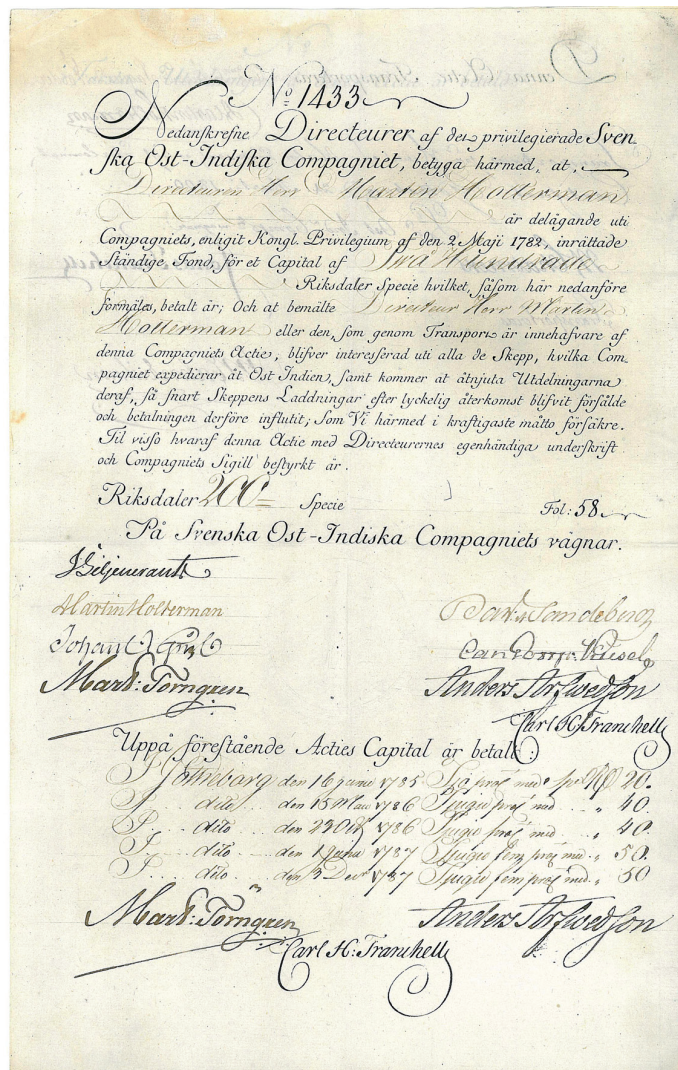 No. 1433
Nedanskrefne Directeurer af det privilegierade Sven-
ska Ost-Indiska Compagniet, betyga härmed, at,
Directeuren Herr Martin Holterman
är delägande uti
Compagniets, enligit Kongl. Privilegium af den 2 Maji 1782, inrättade
Ständige Fond, för et Capital af Två Hundrade
Riksdaler Specie hvilket, såsom här nedanföre
förmäles, betalt är; Och at bemälte Directeur Herr Martin
Holterman eller den, som genom Transport är innehafvare af
denna Compagniets Actie, blifver interesserad uti alla de Skepp, hvilka Com-
pagniet expedierar åt Ost Indien, samt kommer at åtnjuta Utdelningarna
deraf, så snart Skeppens Laddningar efter lyckelig återkomst blifvit försålde
och betalningen derföre influtit; Som Vi härmed i kraftigaste måtto försäkre.
Til visso hvaraf denna Actie med Directeurernes egenhändiga underskrift
och Compagniets Sigill bestyrkt är.
Riksdaler 200 Specie Fol: 58
På Svenska Ost-Indiska Compagniets vägnar.
Martin Holterman
Anders Arfwedson
Carl H: Tranchell
Uppå förestående Acties Capital är betalt:
Götheborg den 16 Junii 1785 20.
dito den 15 1786 40.
dito den 1786 40.
dito den 1 Junii 1787 50.
dito den 3 Decr 1787 50
Anders Arfwedson
Carl H: Tranchell